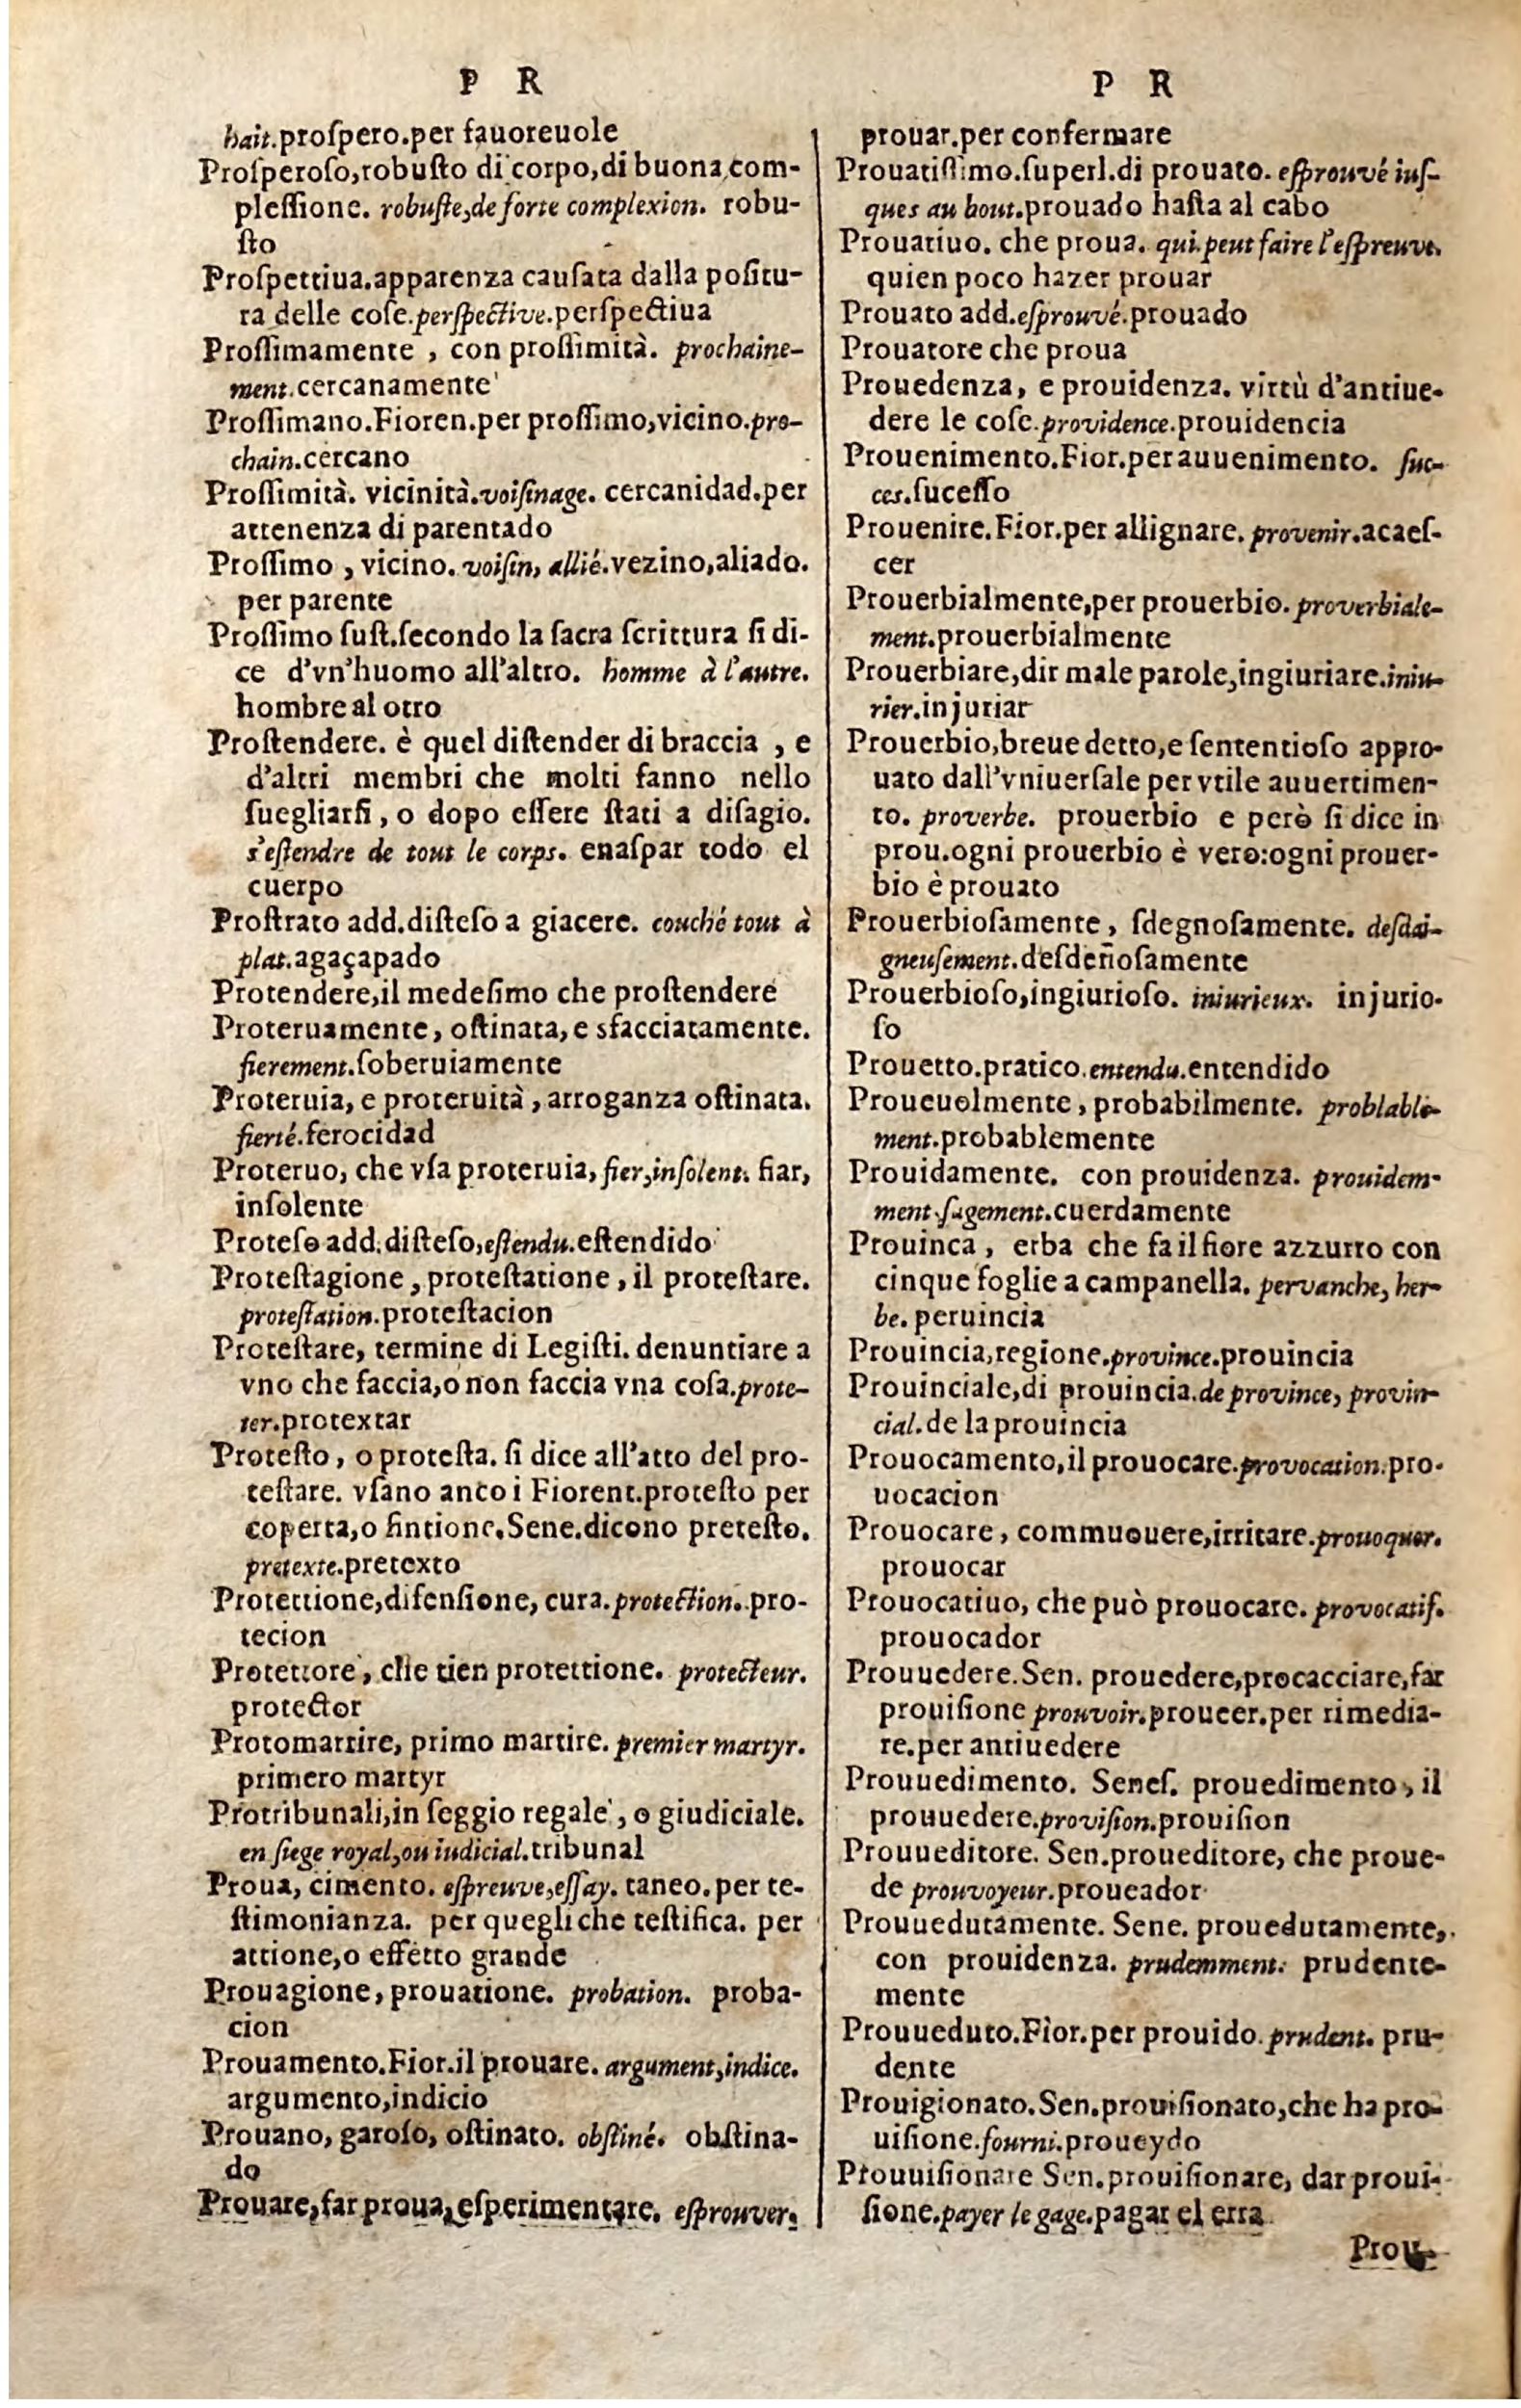 P R
hait.proſpero.per fauoreuole
Proſperoſo,robuſto di corpo,di buona com-
pleſſione. robuſte,de forte complexion. robu-
ſto
Proſpettiua.apparenza cauſata dalla poſitu-
ra delle coſe.perſpective.perſpectiua
Proſſimamente , con proſſimità. prochaine-
ment.cercanamente
Proſſimano.Fioren.per proſſimo,vicino.pro-
chain.cercano
Proſſimità. vicinità.voiſinage. cercanidad.per
attenenza di parentado
Proſſimo , vicino. voiſin, allié.vezino,aliado.
per parente
Proſſimo ſuſt.ſecondo la ſacra ſcrittura ſi di-
ce d'vn'huomo all'altro. homme à l'autre.
hombre al otro
Proſtendere. è quel diſtender di braccia , e
d'altri membri che molti fanno nello
ſuegliarſi, o dopo eſſere ſtati a diſagio.
s'eſtendre de tout le corps. enaſpar todo el
cuerpo
Proſtrato add.diſteſo a giacere. couché tout à
plat.agaçapado
Protendere,il medeſimo che proſtendere
Proteruamente, oſtinata, e sfacciatamente.
fierement.ſoberuiamente
Proteruia, e proteruità , arroganza oſtinata.
fierté.ferocidad
Proteruo, che vſa proteruia, fier,inſolent. fiar,
inſolente
Proteſo add.diſteſo,eſtendu.eſtendido
Proteſtagione, proteſtatione , il proteſtare.
proteſtation.proteſtacion
Proteſtare, termine di Legiſti. denuntiare a
vno che faccia,o non faccia vna coſa.prote-
ter.protextar
Proteſto , o proteſta. ſi dice all'atto del pro-
teſtare. vſano anco i Fiorent.proteſto per
coperta,o fintione.Sene.dicono preteſto.
pretexte.pretexto
Protettione,difenſione, cura.protection. pro-
tecion
Protettore , che tien protettione. protecteur.
protector
Protomartire, primo martire. premier martyr.
primero martyr
Protribunali,in ſeggio regale , o giudiciale.
en ſiege royal,ou iudicial.tribunal
Proua, cimento. eſpreuve,eſſay. taneo.per te-
ſtimonianza. per quegli che teſtifica. per
attione,o effetto grande
Prouagione, prouatione. probation. proba-
cion
Prouamento.Fior.il prouare. argument,indice.
argumento,indicio
Prouano, garoſo, oſtinato. obſtiné. obſtina-
do
Prouare,far proua,eſperimentare. eſprouver.
P R
prouar.per confermare
Prouatiſſimo.ſuperl.di prouato. eſprouvé iuſ-
ques au bout.prouado haſta al cabo
Prouatiuo. che proua. qui peut faire l'eſpreuve.
quien poco hazer prouar
Prouato add.eſprouvé.prouado
Prouatore che proua
Prouedenza, e prouidenza. virtù d'antiue-
dere le coſe.providence.prouidencia
Prouenimento.Fior.per auuenimento. ſuc-
ces.ſuceſſo
Prouenire.Fior.per allignare. provenir.acaeſ-
cer
Prouerbialmente,per prouerbio. proverbiale-
ment.prouerbialmente
Prouerbiare,dir male parole,ingiuriare.iniu-
rier.injuriar
Prouerbio,breue detto,e ſententioſo appro-
uato dall'vniuerſale per vtile auuertimen-
to. proverbe. prouerbio e però ſi dice in
prou.ogni prouerbio è vero:ogni prouer-
bio è prouato
Prouerbioſamente , ſdegnoſamente. deſdai-
gneuſement.deſdeñoſamente
Prouerbioſo,ingiurioſo. iniurieux. injurio-
ſo
Prouetto.pratico.entendu.entendido
Proueuolmente , probabilmente. problable-
ment.probablemente
Prouidamente. con prouidenza. prouidem-
ment.ſagement.cuerdamente
Prouinca , erba che fa il fiore azzurro con
cinque foglie a campanella. pervanche, her-
be. peruincia
Prouincia,regione.province.prouincia
Prouinciale,di prouincia.de province, provin-
cial.de la prouincia
Prouocamento,il prouocare.provocation.pro-
uocacion
Prouocare, commuouere,irritare.prouoquer.
prouocar
Prouocatiuo, che può prouocare. provocatif.
prouocador
Prouuedere.Sen. prouedere,procacciare,far
prouiſione prouvoir.proueer.per rimedia-
re.per antiuedere
Prouuedimento. Seneſ. prouedimento , il
prouuedere.proviſion.prouiſion
Prouueditore. Sen.proueditore, che proue-
de prouvoyeur.proueador
Prouuedutamente. Sene. prouedutamente,
con prouidenza. prudemment. prudente-
mente
Prouueduto.Fior.per prouido. prudent. pru-
dente
Prouigionato.Sen.prouiſionato,che ha pro-
uiſione.fourni.proueydo
Prouuiſionare Sen.prouiſionare, dar proui-
ſione.payer le gage.pagar el erra
Prou-